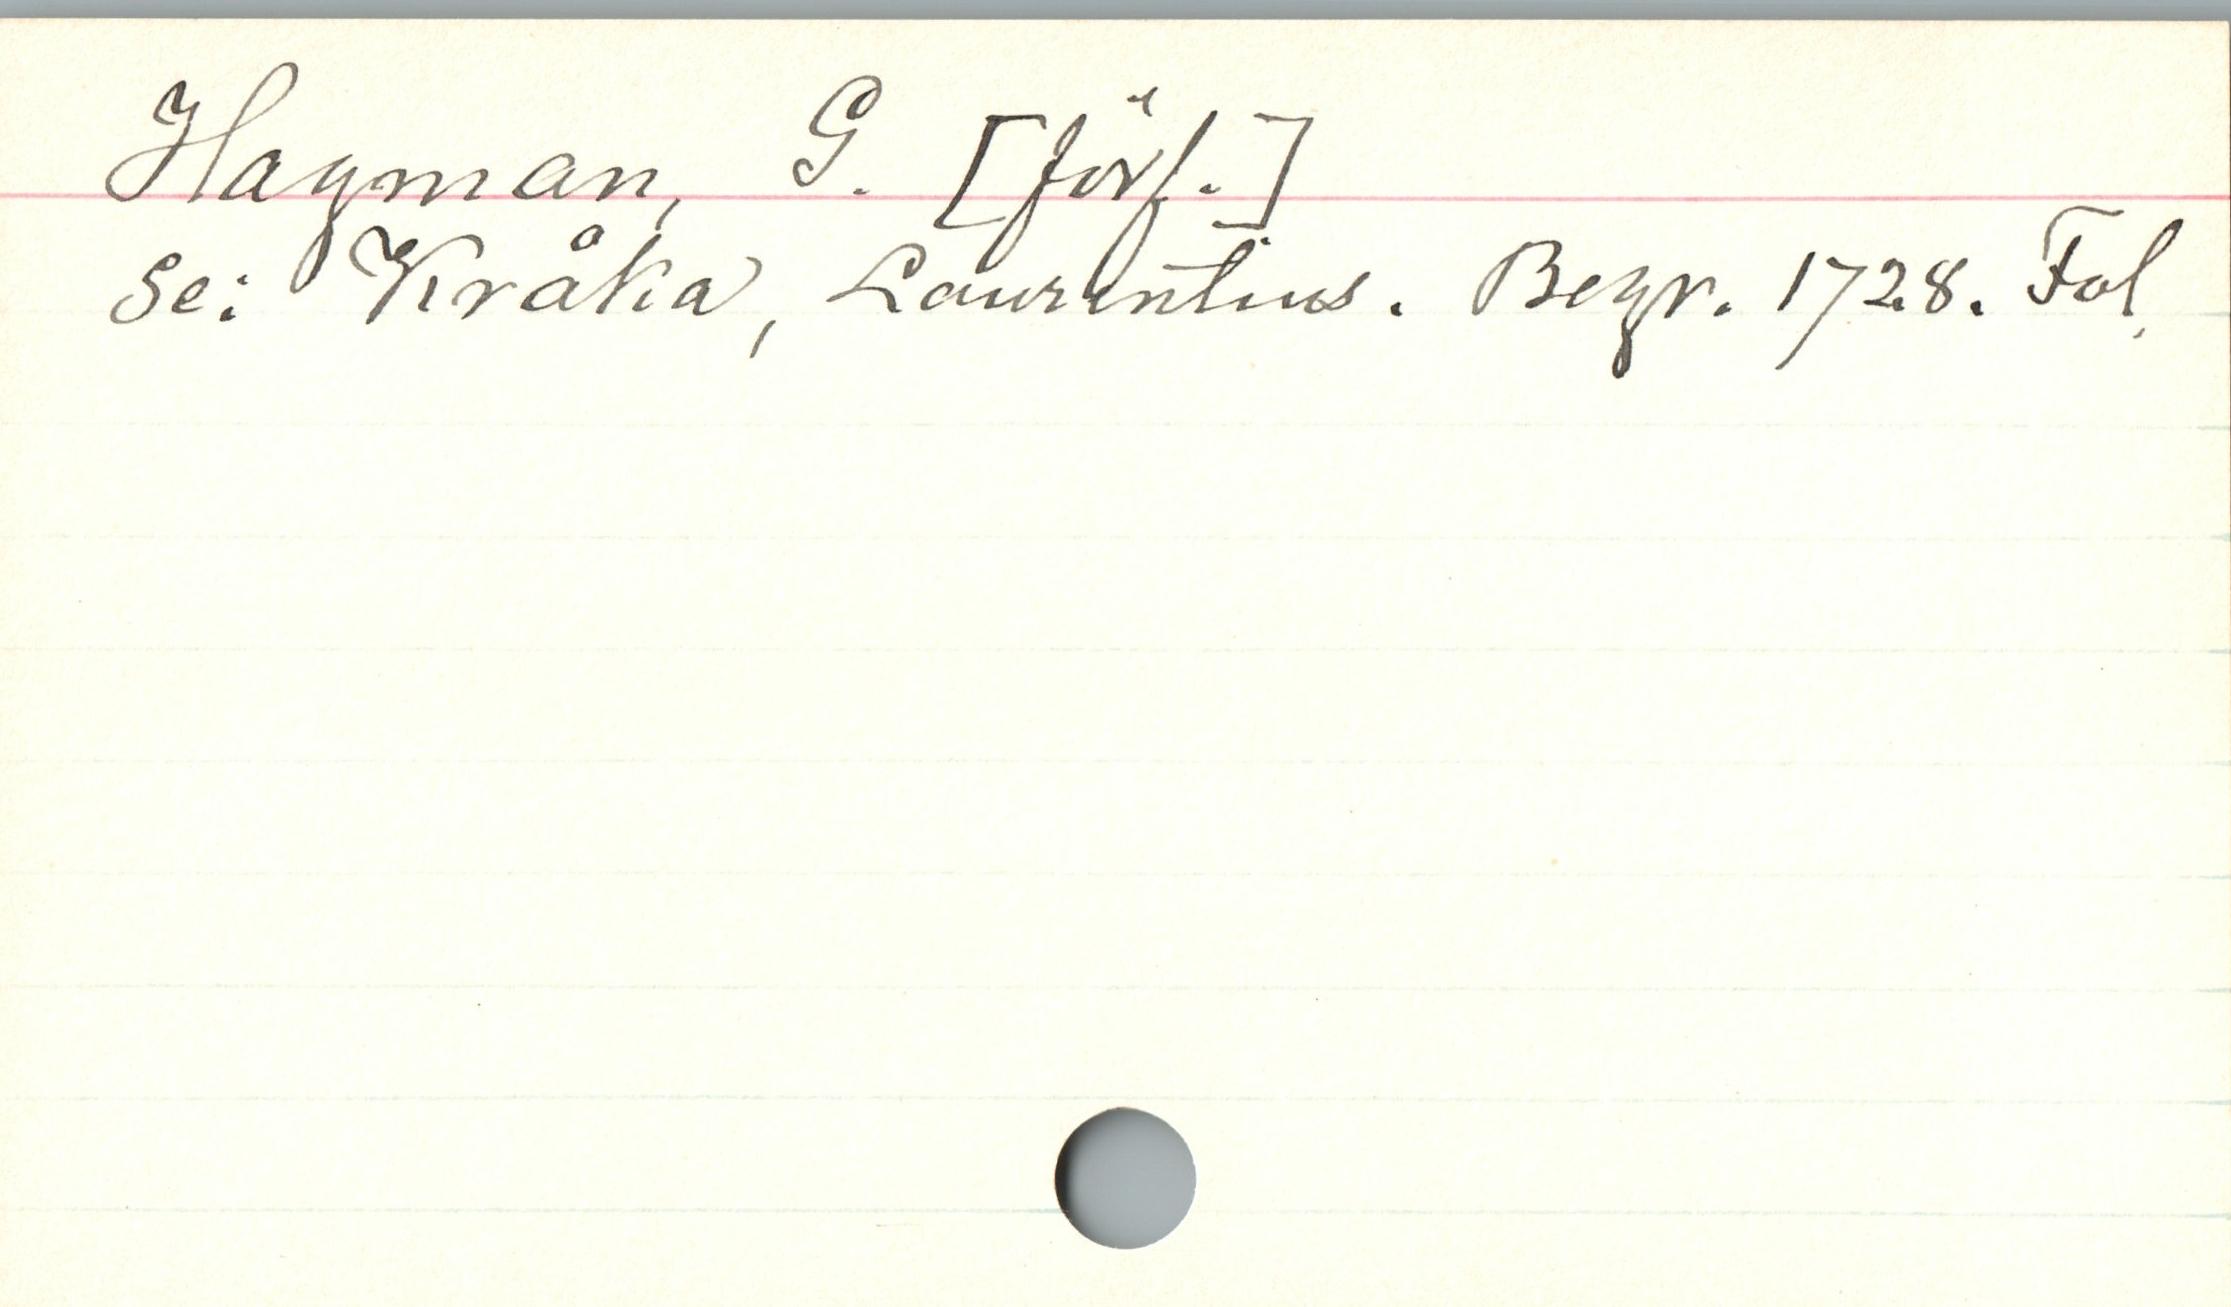 Hagman, G. [förf.]
se: Kråka, Laurentius. Begr. 1728. Fol.